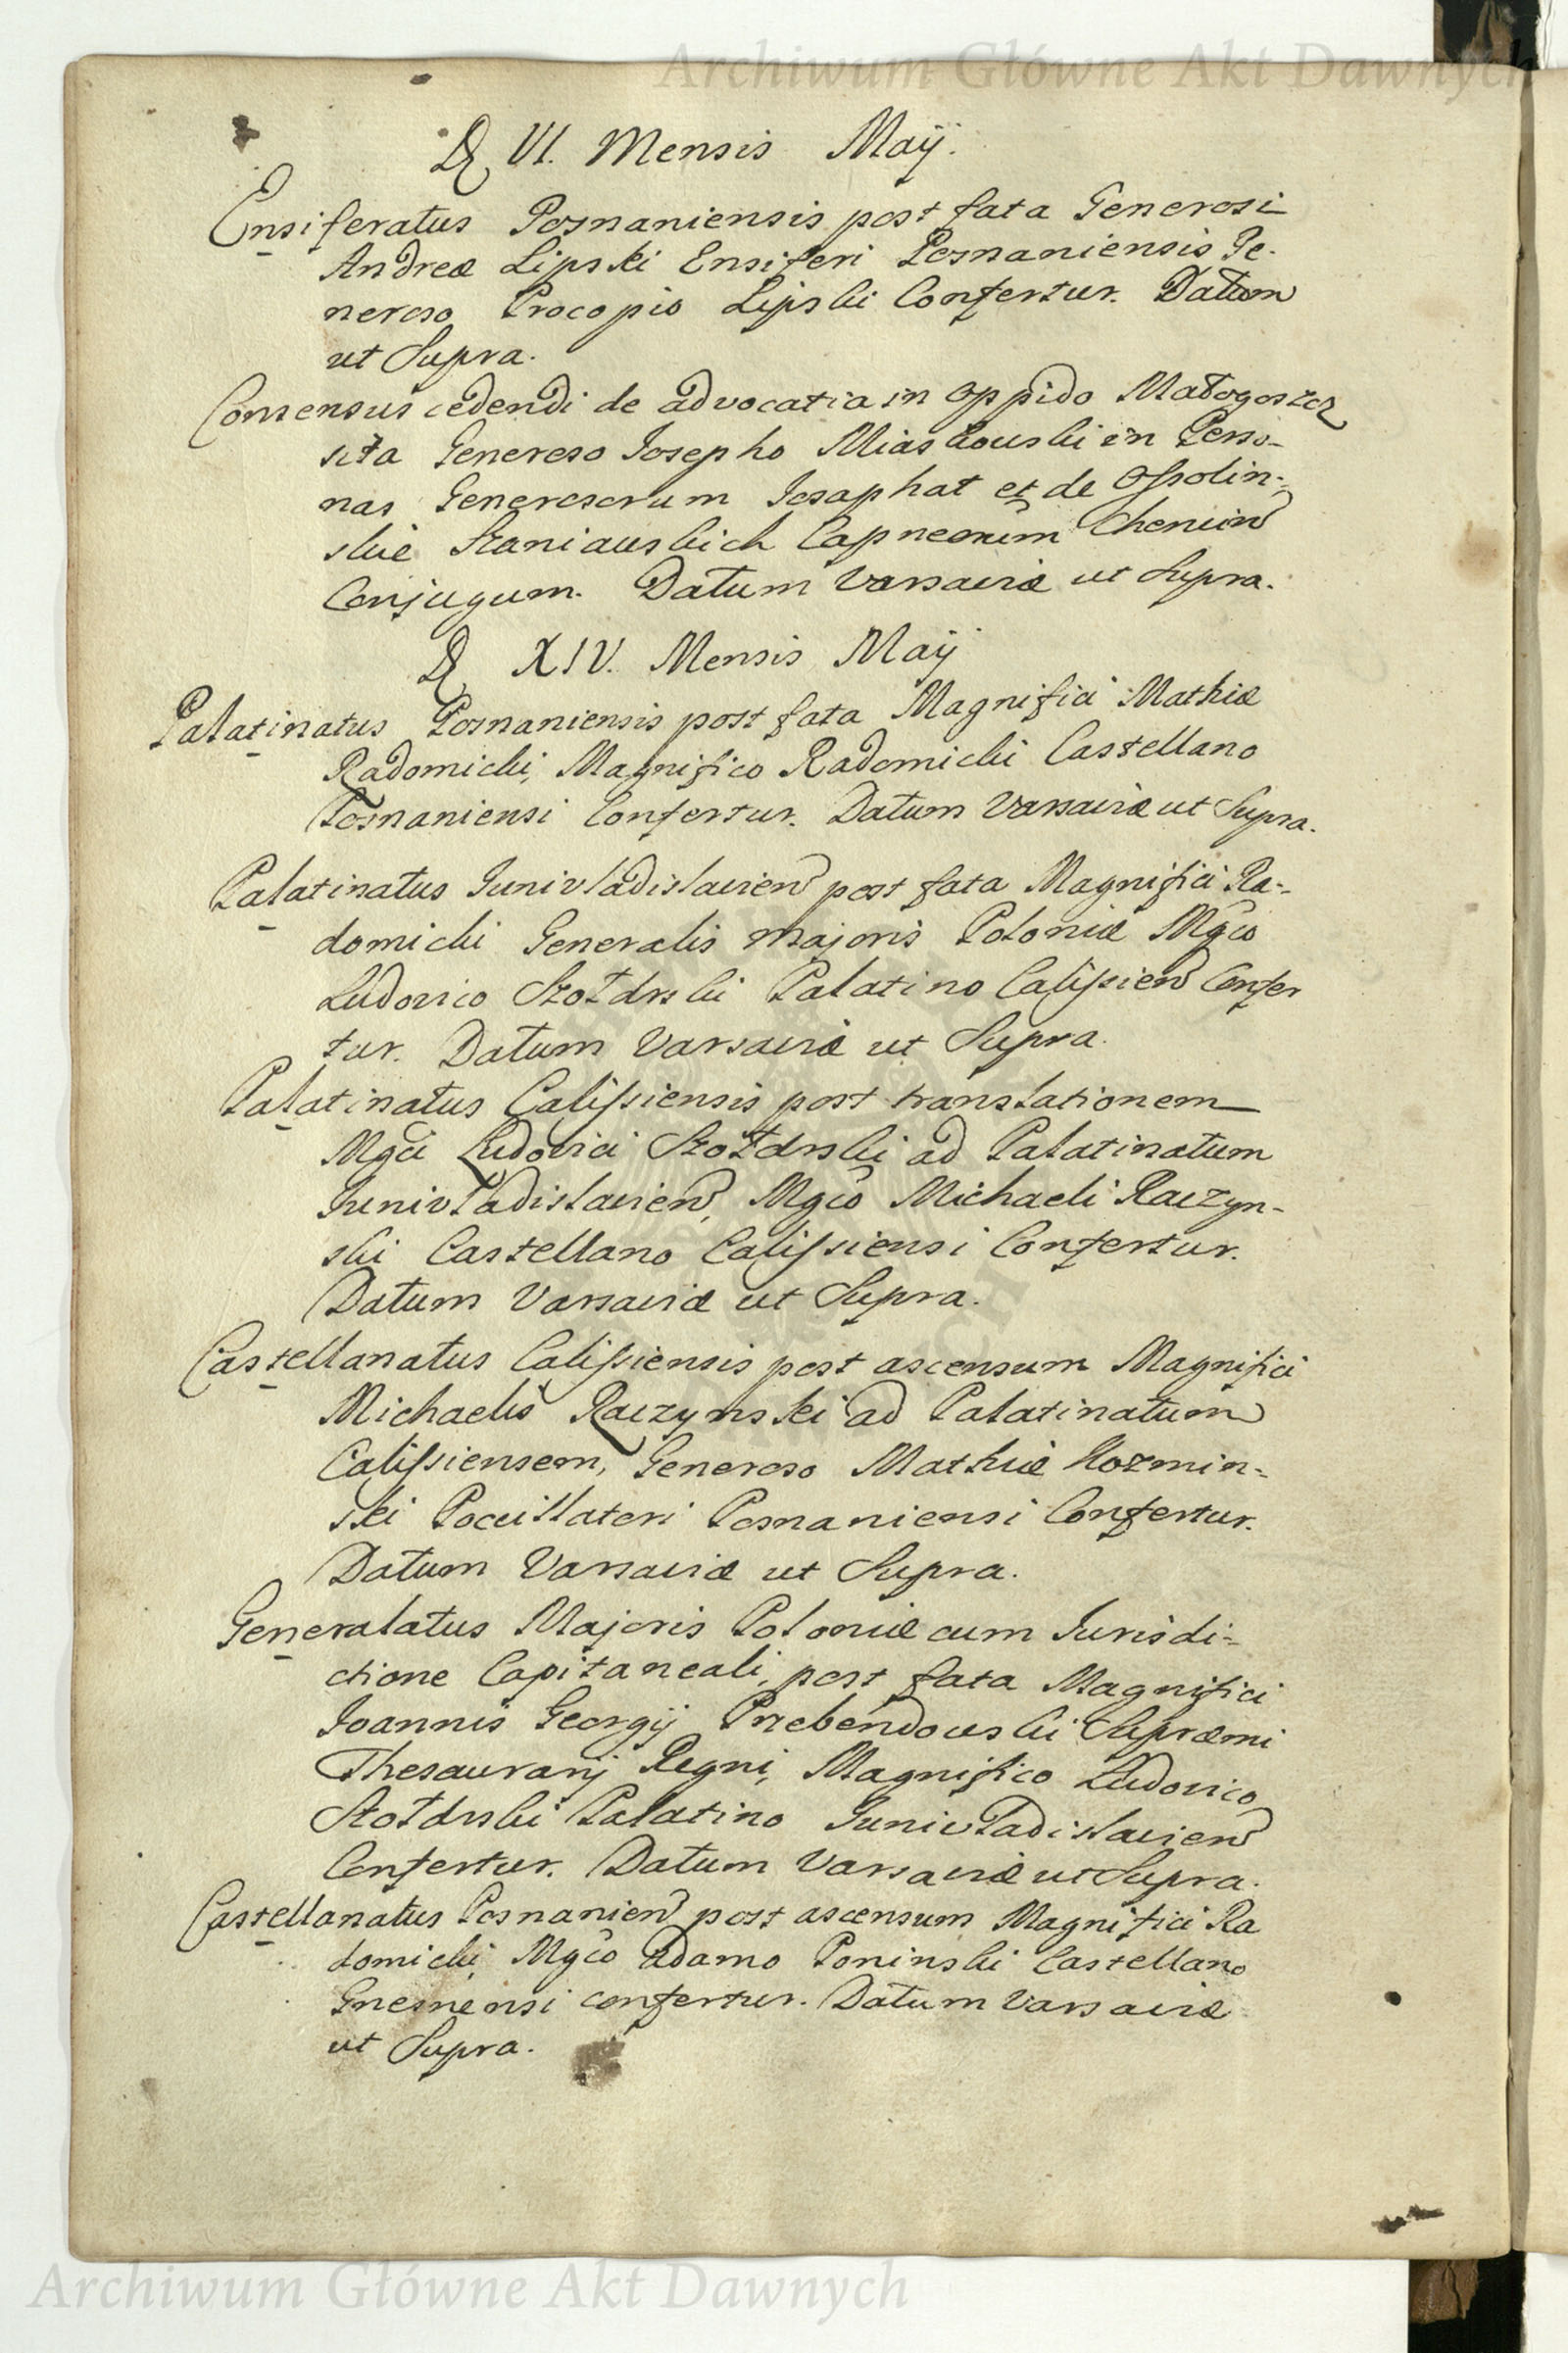 Archiwum Główne Akt Dawnych
D. VI. Mensis Maij.
Ensiferatus Posnaniensis post fata Generosi
Andreæ Lipski Ensiferi Posnaniensis Ge-
neroso Procopio Lipski Confertur. Datum
ut Supra.
Consensus cedendi de advocatia in oppido Małogoszcz
sita Generoso Josepho Miaskowski in Perso-
nas Generosorum Josaphat et de Ossolin-
skie Szaniawskich Capneorum Chencin
Conjugum. Datum Varsaviæ ut Supra.
D. XIV. Mensis Maij
Palatinatus Posnaniensis post fata Magnifici Mathiæ
Radomicki, Magnifico Radomicki Castellano
Posnaniensi Confertur. Datum Varsaviæ ut Supra.
Palatinatus Junivladislavien post fata Magnifici Ra-
domicki Generalis majoris Poloniæ Mgco
Ludovico Szołdrski Palatino Calissien Confer
tur. Datum Varsaviæ ut Supra.
Palatinatus Calissiensis post translationem
Mgci Ludovici Szołdrski ad Palatinatum
Junivladislavien, Mgco Michaeli Raczyn-
ski Castellano Calissiensi Confertur.
Datum Varsaviæ ut Supra.
Castellanatus Calissiensis post ascensum Magnifici
Michaelis Raczynski ad Palatinatum
Calissiensem, Generoso Mathiæ Kozmin-
ski Pocillatori Posnaniensi Confertur.
Datum Varsaviæ ut Supra.
Generalatus Majoris Poloniæ cum Jurisdi-
ctione Capitaneali, post fata Magnifici
Joannis Georgij Przebendowski Supræmi
Thesaurarij Regni, Magnifico Ludovico
Szołdrski Palatino Junivladislavien
Confertur. Datum Varsaviæ ut Supra.
Castellanatus Posnanien post ascensum Magnifici Ra
domicki, Mgco Adamo Poninski Castellano
Gnesnensi confertur. Datum Varsaviæ
ut Supra.
Archiwum Główne Akt Dawnych